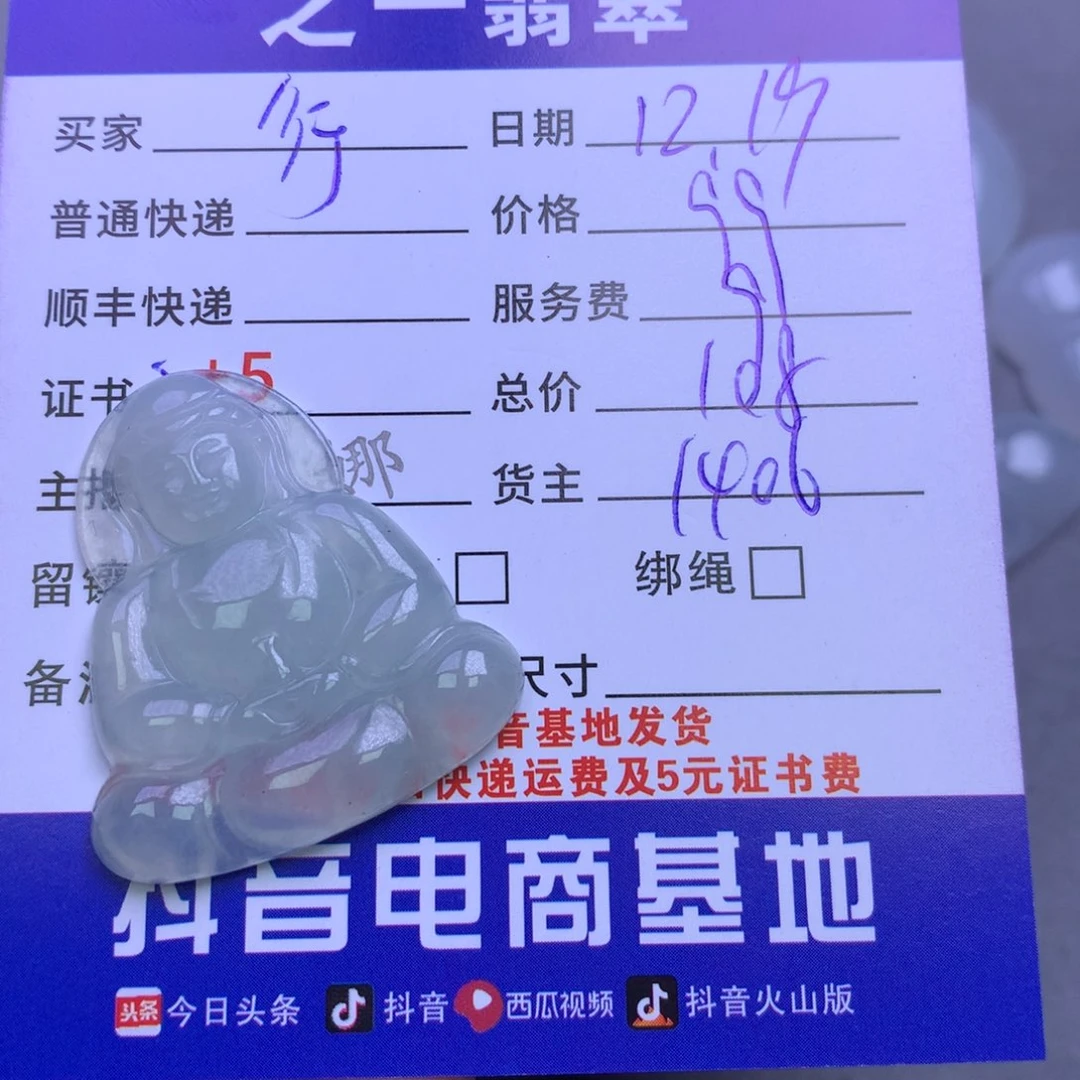 之一翡翠
买家 行 日期 12.19
普通快递 价格 99
顺丰快递 服务费 9
证书 +5 总价 108
主播 那 货主 1406
留镶 绑绳
备注 尺寸
音基地发货
快递运费及5元证书费
抖音电商基地
头条 今日头条 抖音 西瓜视频 抖音火山版